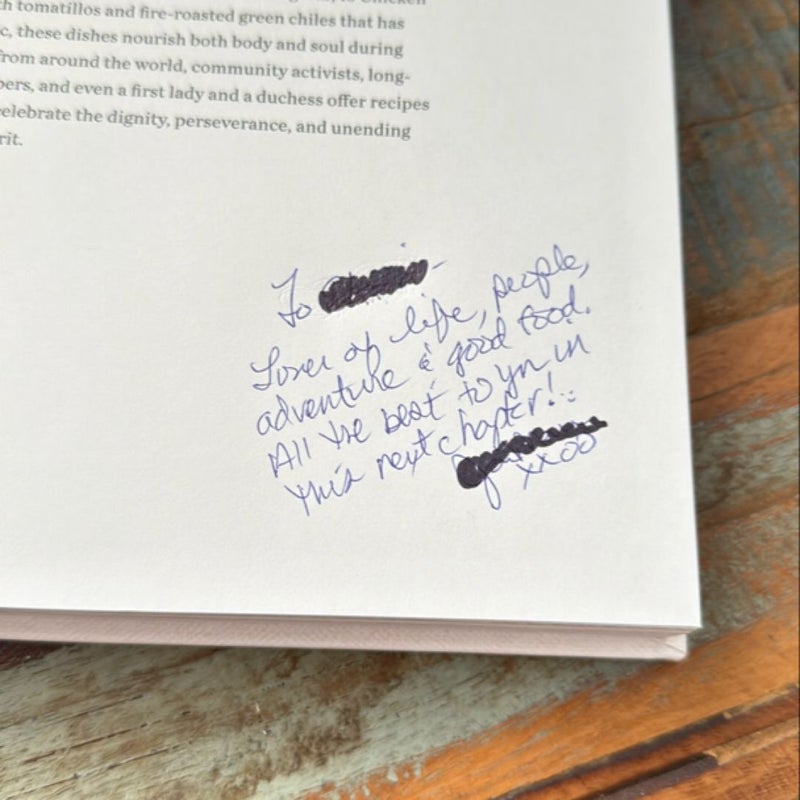 h tomatillos and fire-roasted green chiles that has
c, these dishes nourish both body and soul during
from around the world, community activists, long-
pers, and even a first lady and a duchess offer recipes
celebrate the dignity, perseverance, and unending
rit.
To
Lover of life, people,
adventure & good food.
All the best to you in
this next chapter!
xxoo